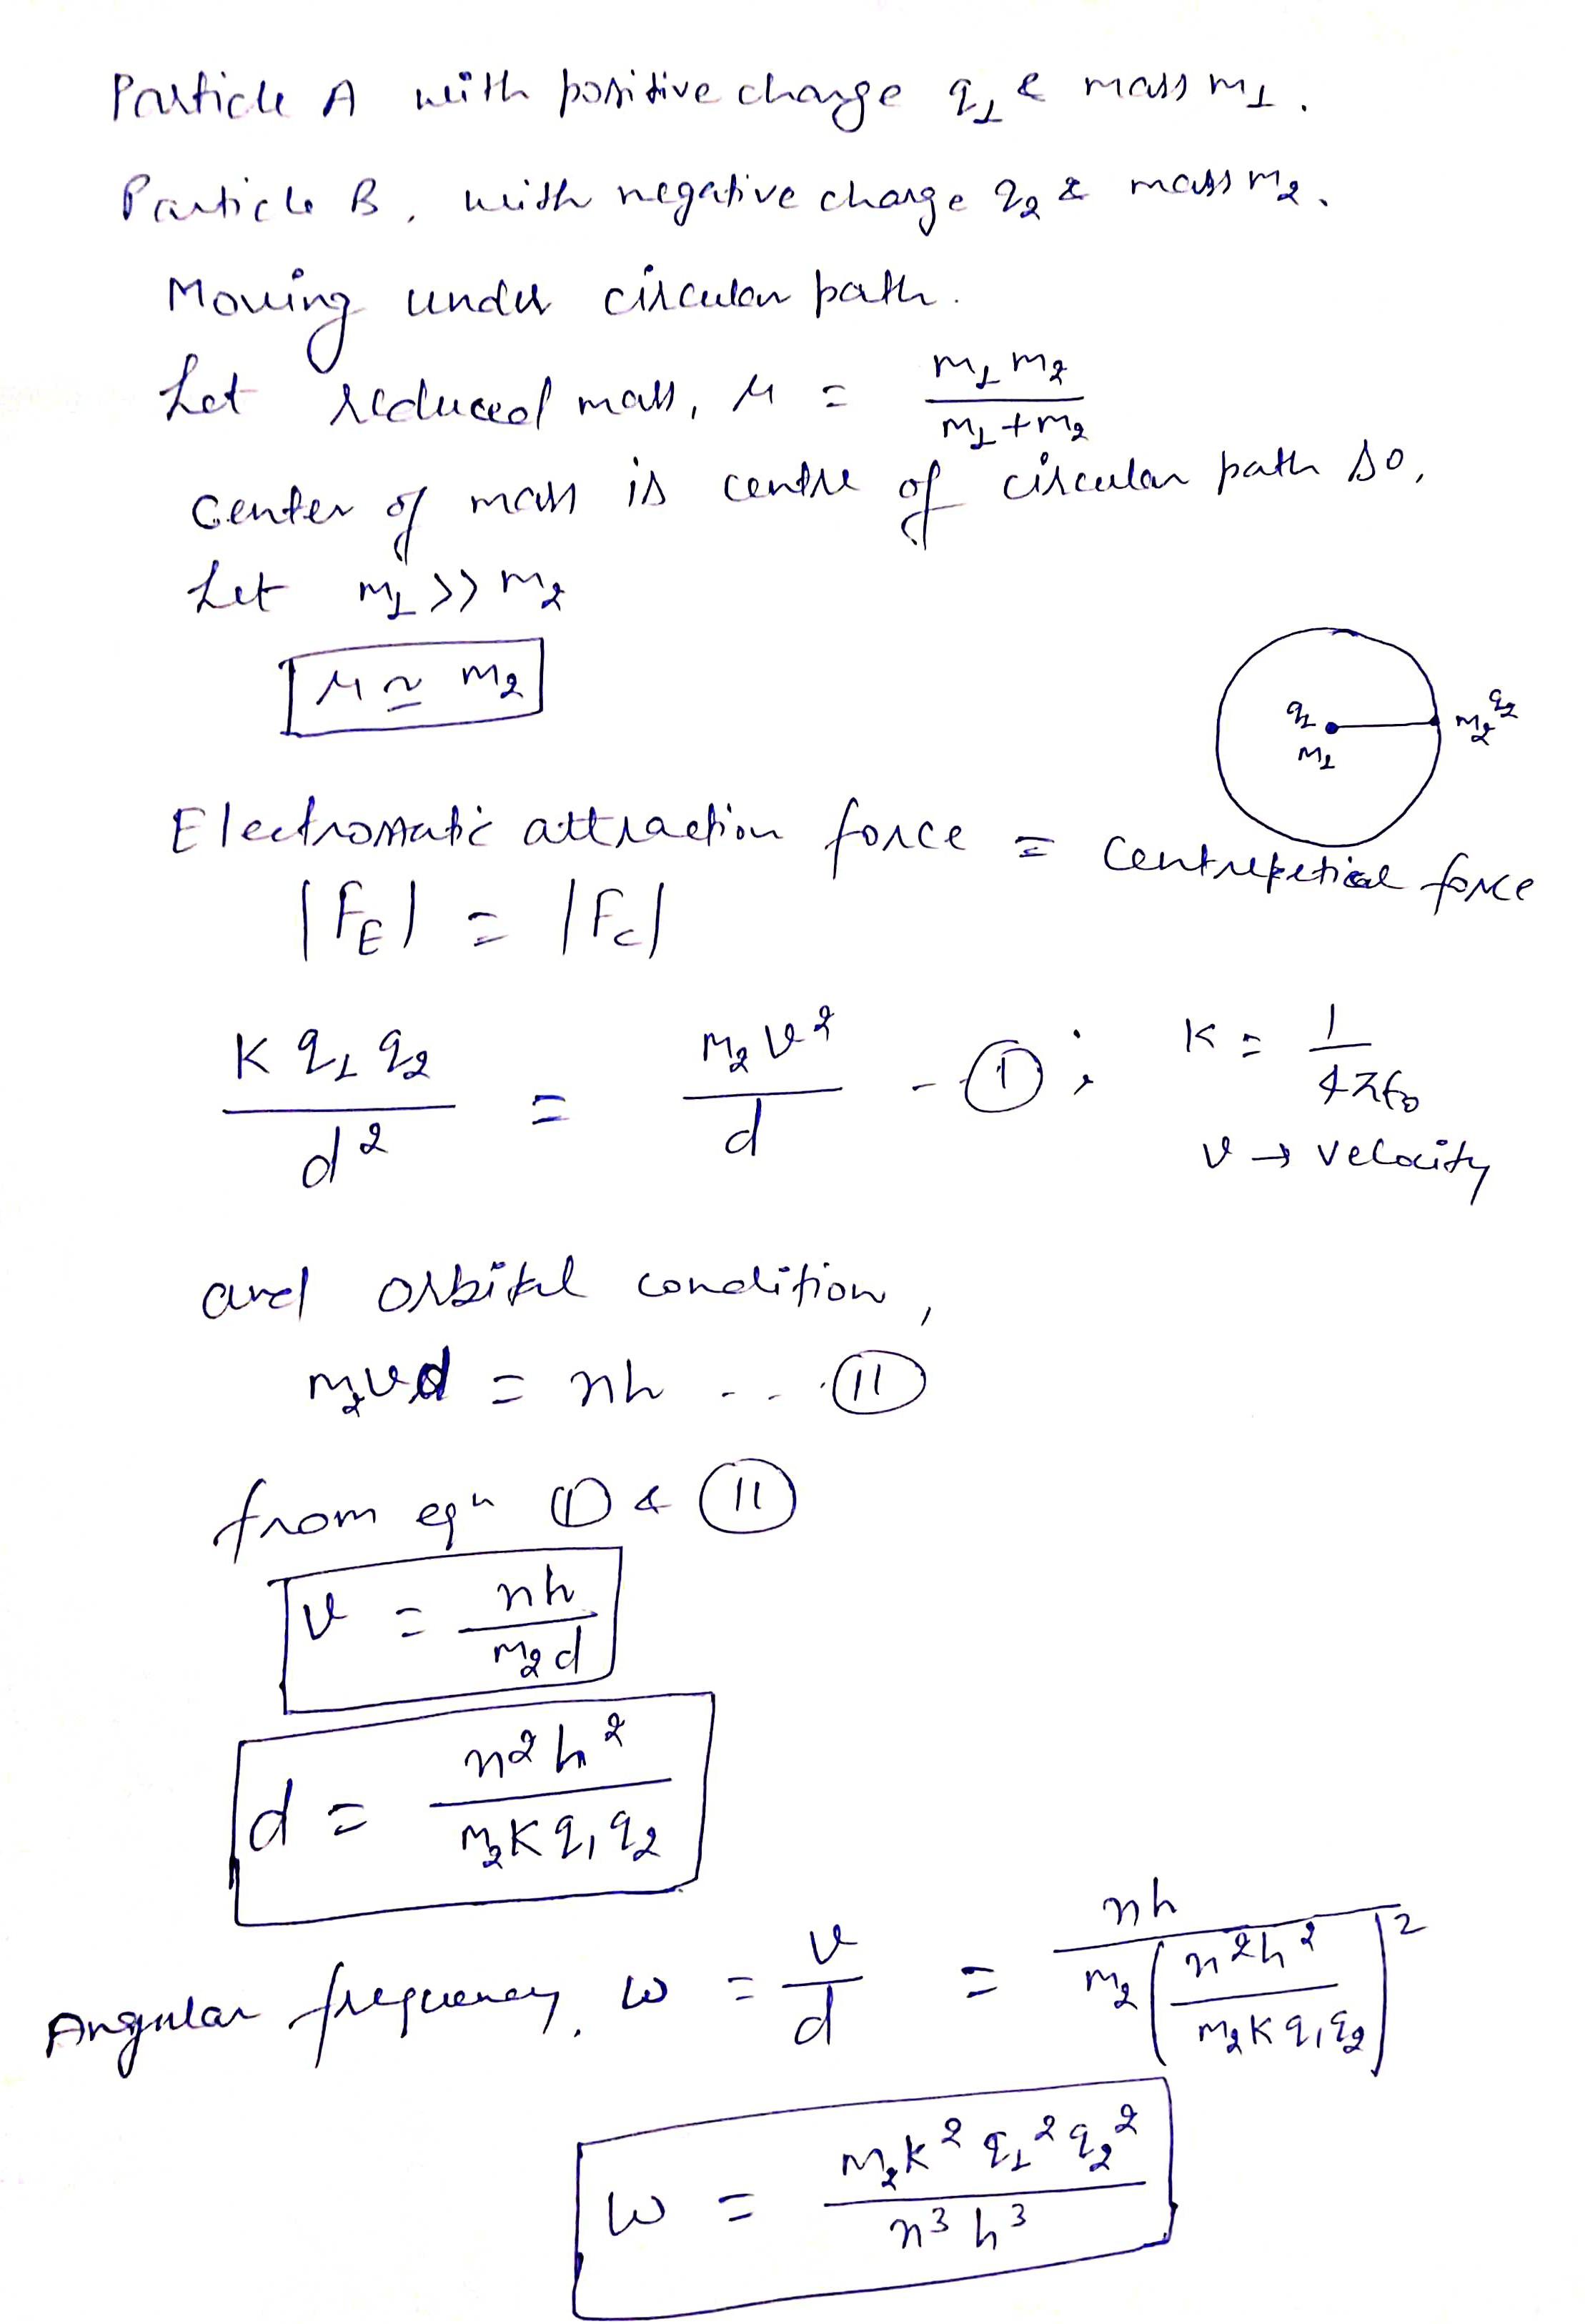 Particle A with positive charge q₁ & mass m₁.
Particle B, with negative charge q₂ & mass m₂.
Moving under circular path.
Let reduced mass, μ = m₁m₂ / m₁+m₂
Center of mass is centre of circular path so,
Let m₁ >> m₂
μ ≃ m₂
q₁ m₁ m₂ q₂
Electrostatic attraction force = Centrepetical force
|F_E| = |F_c|
K q₁ q₂ / d² = m₂v² / d - (I) ; K = 1 / 4πϵ₀
v → velocity
and orbital condition,
m₂vd = nh ... (II)
from eqⁿ (I) & (II)
v = nh / m₂d
d = n²h² / m₂Kq₁q₂
Angular frequency, ω = v / d = nh / m₂(n²h² / m₂Kq₁q₂)²
ω = m₂k²q₁²q₂² / n³h³